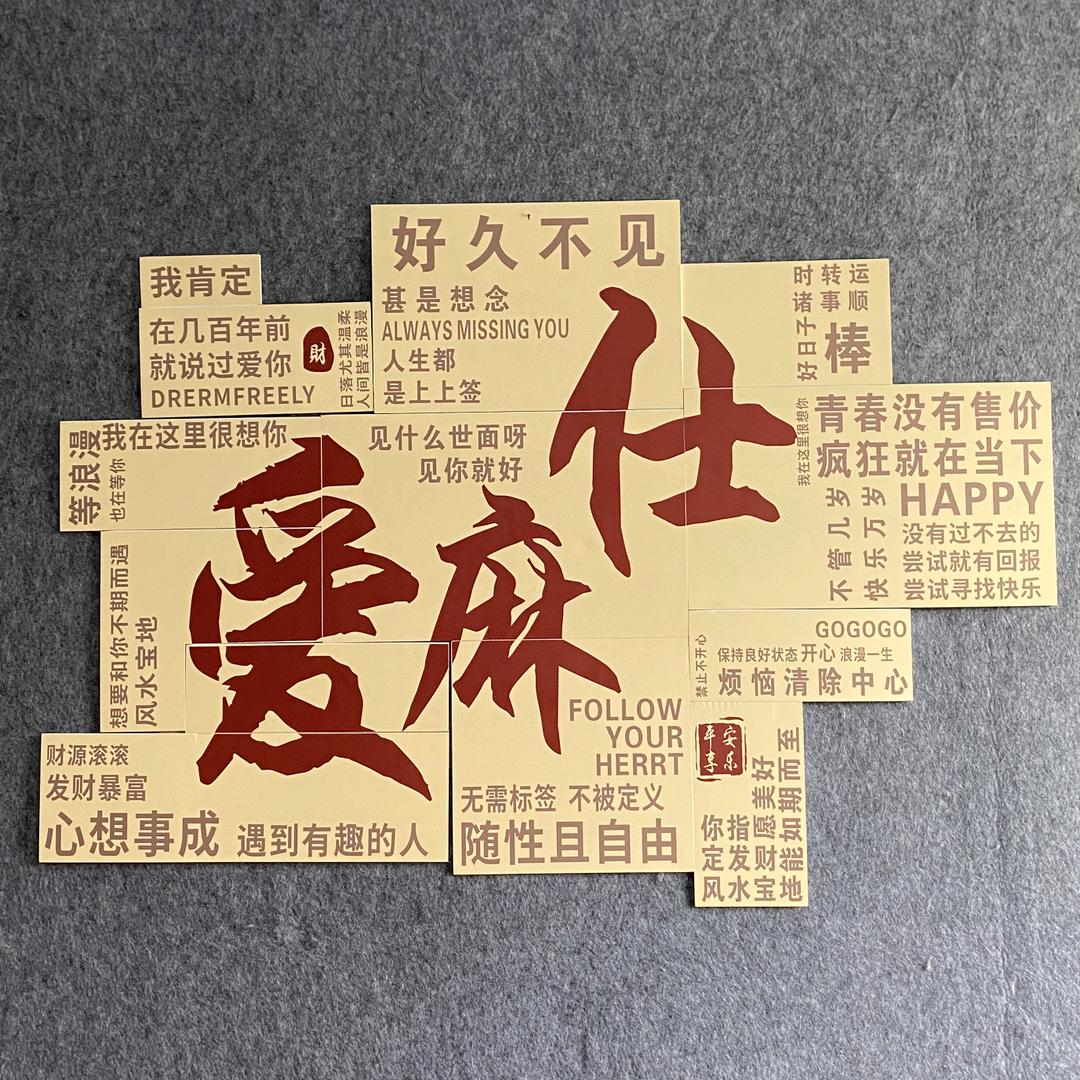 好久不见
甚是想念
ALWAYS MISSING YOU
人生都
是上上签
我肯定
在几百年前
就说过爱你
DRERMFREELY
財
日落尤其温柔
人间皆是浪漫
时转运
诸事顺
好日子
棒
等浪漫
也在等你
我在这里很想你
见什么世面呀
见你就好
爱麻仕
我在这里很想你
青春没有售价
疯狂就在当下
HAPPY
不管几岁
快乐万岁
没有过不去的
尝试就有回报
尝试寻找快乐
想要和你不期而遇
风水宝地
禁止不开心
GOGOGO
保持良好状态 开心 浪漫一生
烦恼清除中心
FOLLOW
YOUR
HERRT
无需标签 不被定义
随性且自由
财源滚滚
发财暴富
心想事成 遇到有趣的人
平安
享乐
美好
如期而至
你指愿
定发财能
风水宝地